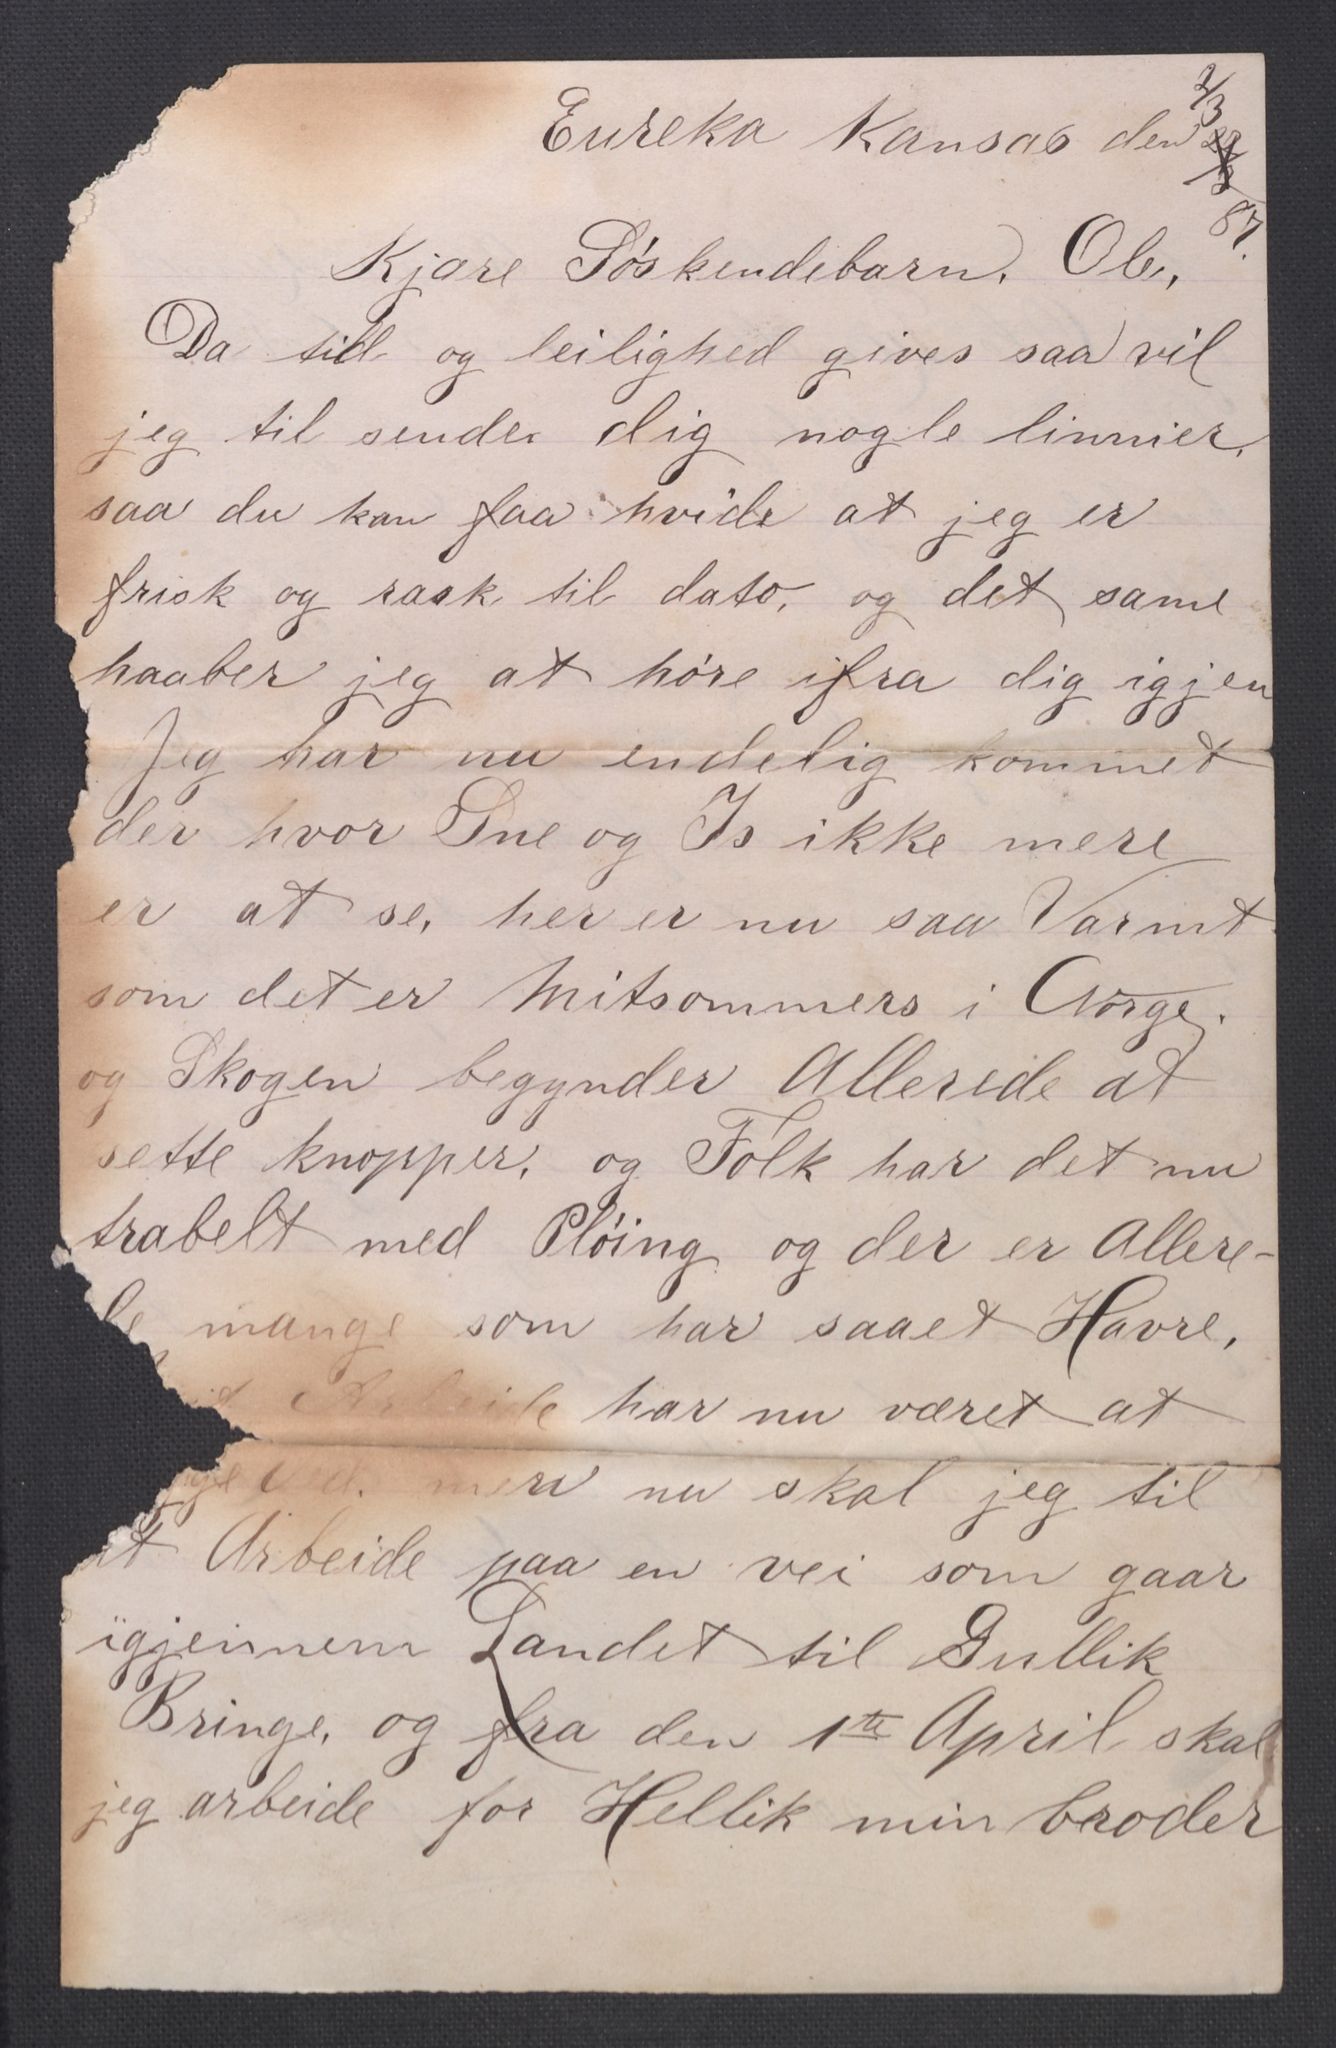 Eureka Kansas den 2/3
87.
Kjære Søskendebarn, Ole,
Da tid og leilighed gives saa vil
jeg til sender dig nogle linnier,
saa du kan faa hvide at jeg er
frisk og rask til dato, og det same
haaber jeg at høre ifra dig igjen
Jeg har nu endelig kommet
der hvor Sne og Is ikke mere
er at se, her er nu saa Varmt
som det er Mitsommers i Norge,
og Skogen begynder Allerede at
sette knopper, og Folk har det nu
trabelt med Pløing og der er Allere-
de mange som har saaet Havre,
Arbeide har nu været at
Ved, men nu skal jeg til
at Arbeide paa en vei som gaar
igjennem Landet til Gullik
Bringe, og fra den 1te April skal
jeg arbeide for Hellik min broder